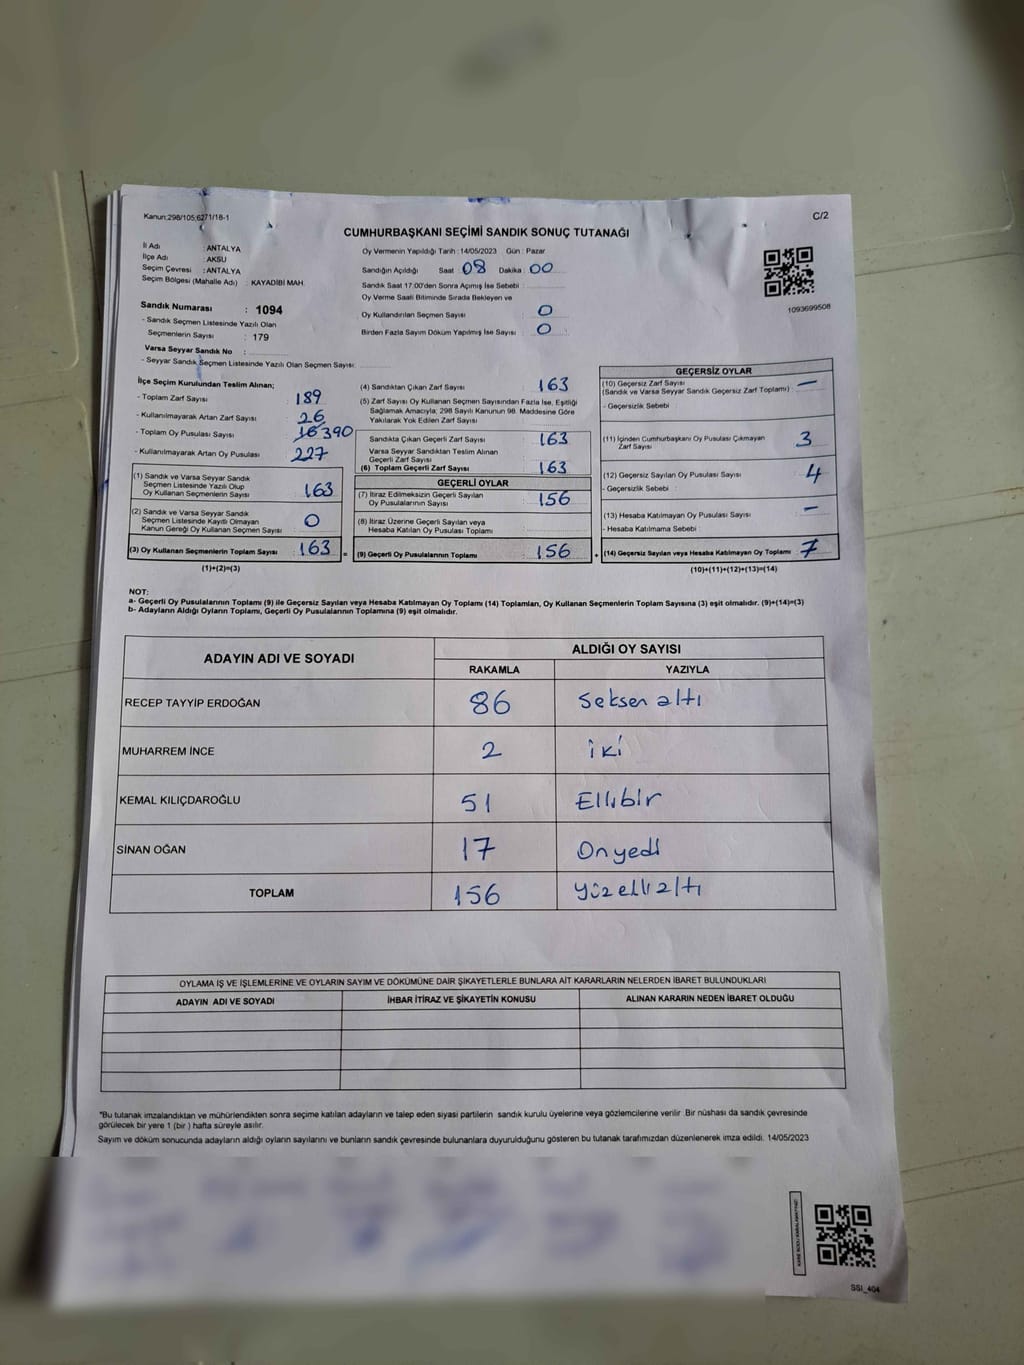 Kanun:298/105,6271/18-1
C/2
CUMHURBAŞKANI SEÇİMİ SANDIK SONUÇ TUTANAĞI
İl Adı : ANTALYA
İlçe Adı : AKSU
Seçim Çevresi : ANTALYA
Seçim Bölgesi (Mahalle Adı) : KAYADİBİ MAH.
Oy Vermenin Yapıldığı Tarih : 14/05/2023 Gün : Pazar
Sandığın Açıldığı Saat : 08 Dakika : 00
Sandık Saat 17.00'den Sonra Açımış İse Sebebi :
Oy Verme Saati Bitiminde Sırada Bekleyen ve
Oy Kullandırılan Seçmen Sayısı : 0
Birden Fazla Sayım Döküm Yapılmış İse Sayısı : 0
1093699508
Sandık Numarası : 1094
- Sandık Seçmen Listesinde Yazılı Olan
Seçmenlerin Sayısı : 179
Varsa Seyyar Sandık No :
- Seyyar Sandık Seçmen Listesinde Yazılı Olan Seçmen Sayısı:
İlçe Seçim Kurulundan Teslim Alınan;
- Toplam Zarf Sayısı : 189
- Kullanılmayarak Artan Zarf Sayısı : 26
- Toplam Oy Pusulası Sayısı : 390
- Kullanılmayarak Artan Oy Pusulası : 227
(1) Sandık ve Varsa Seyyar Sandık
Seçmen Listesinde Yazılı Olup
Oy Kullanan Seçmenlerin Sayısı : 163
(2) Sandık ve Varsa Seyyar Sandık
Seçmen Listesinde Kayıtlı Olmayan
Kanun Gereği Oy Kullanan Seçmen Sayısı : 0
(3) Oy Kullanan Seçmenlerin Toplam Sayısı : 163
(1)+(2)=(3)
(4) Sandıktan Çıkan Zarf Sayısı : 163
(5) Zarf Sayısı Oy Kullanan Seçmen Sayısından Fazla İse, Eşitliği
Sağlamak Amacıyla; 298 Sayılı Kanunun 98. Maddesine Göre
Yakılarak Yok Edilen Zarf Sayısı :
Sandıkta Çıkan Geçerli Zarf Sayısı : 163
Varsa Seyyar Sandıktan Teslim Alınan
Geçerli Zarf Sayısı :
(6) Toplam Geçerli Zarf Sayısı : 163
GEÇERLİ OYLAR
(7) İtiraz Edilmeksizin Geçerli Sayılan
Oy Pusulalarının Sayısı : 156
(8) İtiraz Üzerine Geçerli Sayılan veya
Hesaba Katılan Oy Pusulası Toplamı :
= (9) Geçerli Oy Pusulalarının Toplamı : 156
GEÇERSİZ OYLAR
(10) Geçersiz Zarf Sayısı
(Sandık ve Varsa Seyyar Sandık Geçersiz Zarf Toplamı) : —
- Geçersizlik Sebebi
(11) İçinden Cumhurbaşkanı Oy Pusulası Çıkmayan
Zarf Sayısı : 3
(12) Geçersiz Sayılan Oy Pusulası Sayısı : 4
- Geçersizlik Sebebi :
(13) Hesaba Katılmayan Oy Pusulası Sayısı : —
- Hesaba Katılmama Sebebi :
+ (14) Geçersiz Sayılan veya Hesaba Katılmayan Oy Toplamı : 7
(10)+(11)+(12)+(13)=(14)
NOT:
a- Geçerli Oy Pusulalarının Toplamı (9) ile Geçersiz Sayılan veya Hesaba Katılmayan Oy Toplamı (14) Toplamları, Oy Kullanan Seçmenlerin Toplam Sayısına (3) eşit olmalıdır. (9)+(14)=(3)
b- Adayların Aldığı Oyların Toplamı, Geçerli Oy Pusulalarının Toplamına (9) eşit olmalıdır.
ADAYIN ADI VE SOYADI
ALDIĞI OY SAYISI
RAKAMLA YAZIYLA
RECEP TAYYİP ERDOĞAN 86 Seksen altı
MUHARREM İNCE 2 iki
KEMAL KILIÇDAROĞLU 51 Ellibir
SİNAN OĞAN 17 Onyedi
TOPLAM 156 yüzellialtı
OYLAMA İŞ VE İŞLEMLERİNE VE OYLARIN SAYIM VE DÖKÜMÜNE DAİR ŞİKAYETLERLE BUNLARA AİT KARARLARIN NELERDEN İBARET BULUNDUKLARI
ADAYIN ADI VE SOYADI İHBAR İTİRAZ VE ŞİKAYETİN KONUSU ALINAN KARARIN NEDEN İBARET OLDUĞU
"Bu tutanak imzalandıktan ve mühürlendikten sonra seçime katılan adayların ve talep eden siyasi partilerin sandık kurulu üyelerine veya gözlemcilerine verilir. Bir nüshası da sandık çevresinde
görülecek bir yere 1 (bir ) hafta süreyle asılır.
Sayım ve döküm sonucunda adayların aldığı oyların sayılarını ve bunların sandık çevresinde bulunanlara duyurulduğunu gösteren bu tutanak tarafımızdan düzenlenerek imza edildi. 14/05/2023
SSI_404